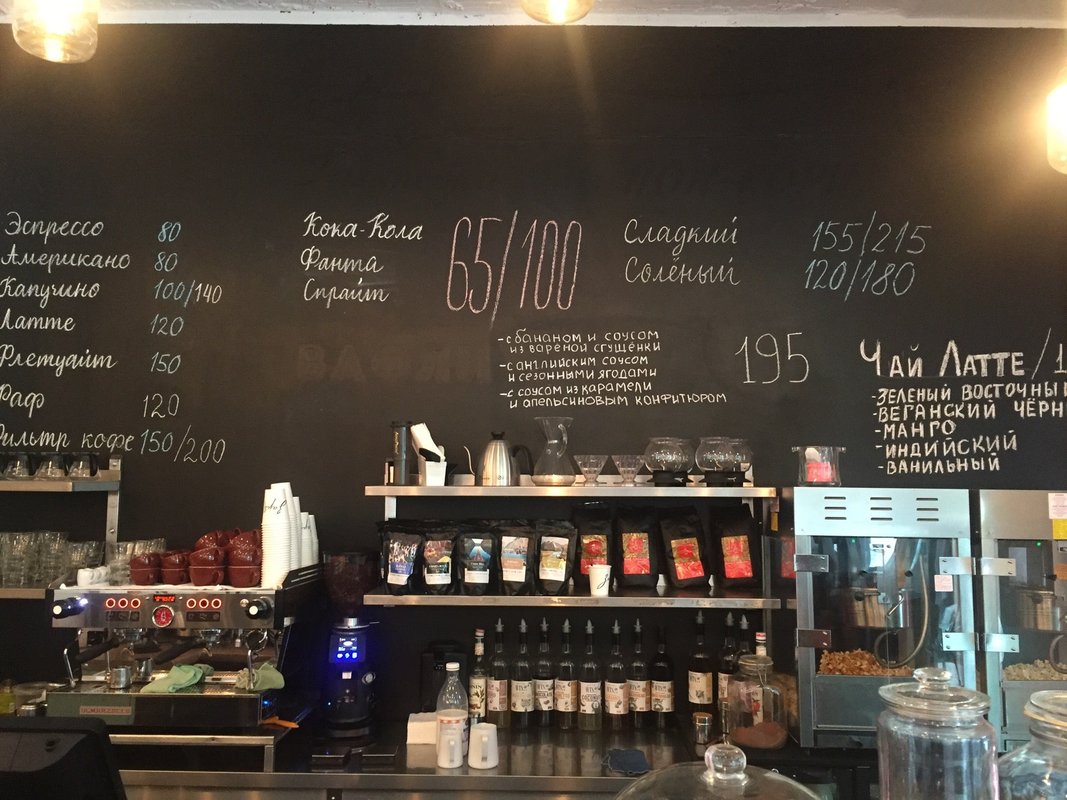 Эспрессо 80
Американо 80
Капучино 100/140
Латте 120
Флетуайт 150
Раф 120
Фильтр кофе 150/200
Кока-Кола
Фанта
Спрайт
65/100
Сладкий 155/215
Солёный 120/180
-с бананом и соусом
из вареной сгущёнки
-с английским соусом
и сезонными ягодами
-с соусом из карамели
и апельсиновым конфитюром
195
Чай Латте/1
-зеленый восточный
-веганский чёрн
-манго
-индийский
-ванильный